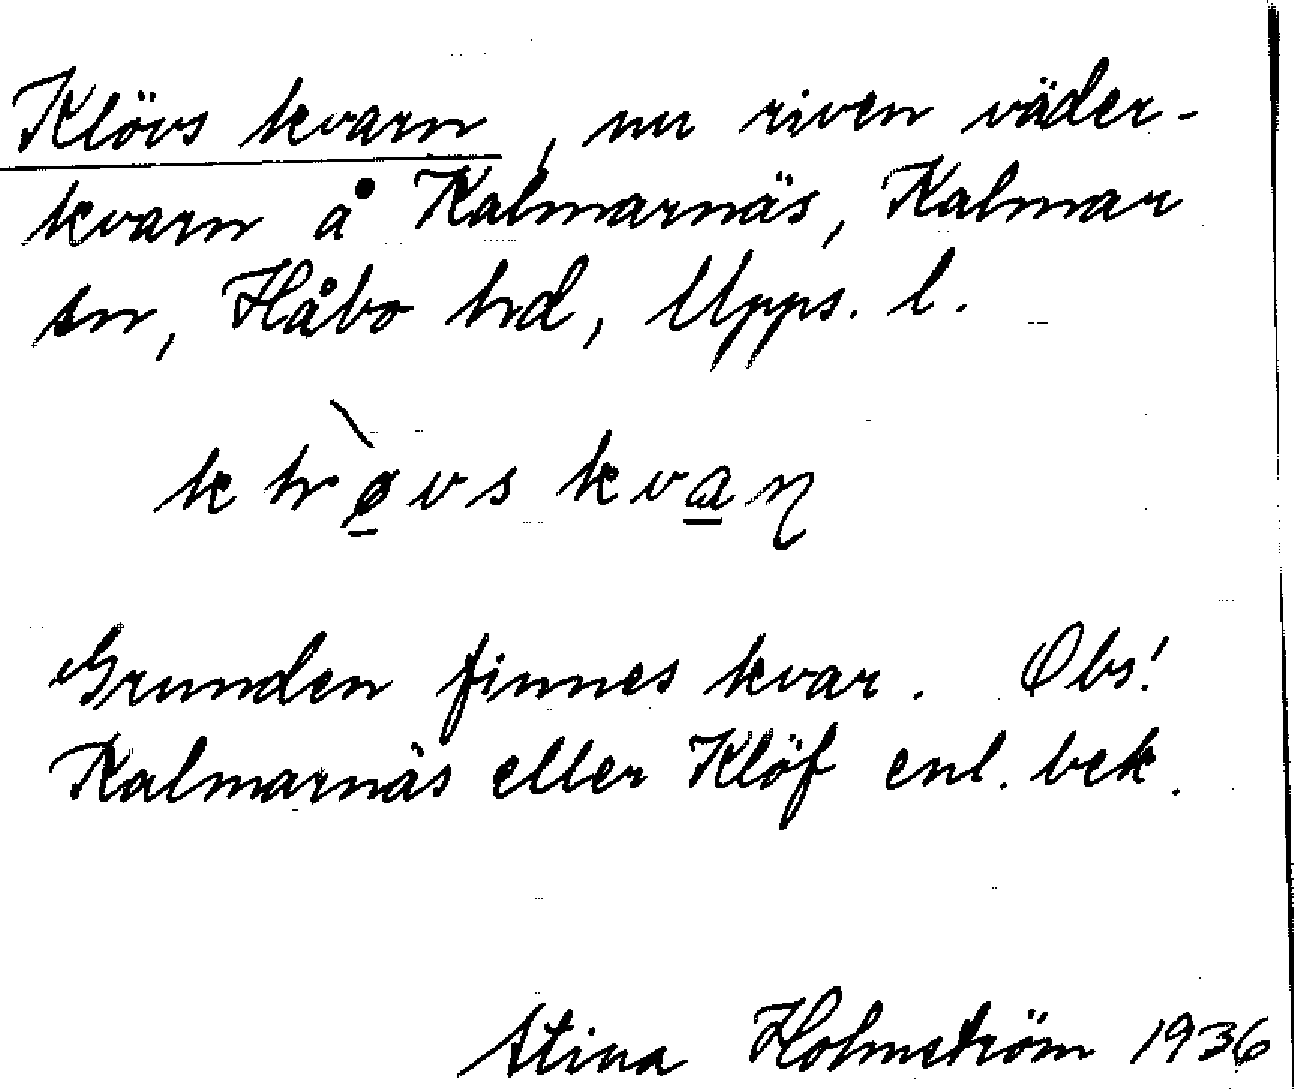 Klövs kvarn, nu riven väder-
kvarn å Kalmarnäs, Kalmar
sn, Håbo hd, Upps. l.
kvaɳ
Grunden finnes kvar. Obs!
Kalmarnäs eller Klöf enl. bek.
Stina Holmström 1936